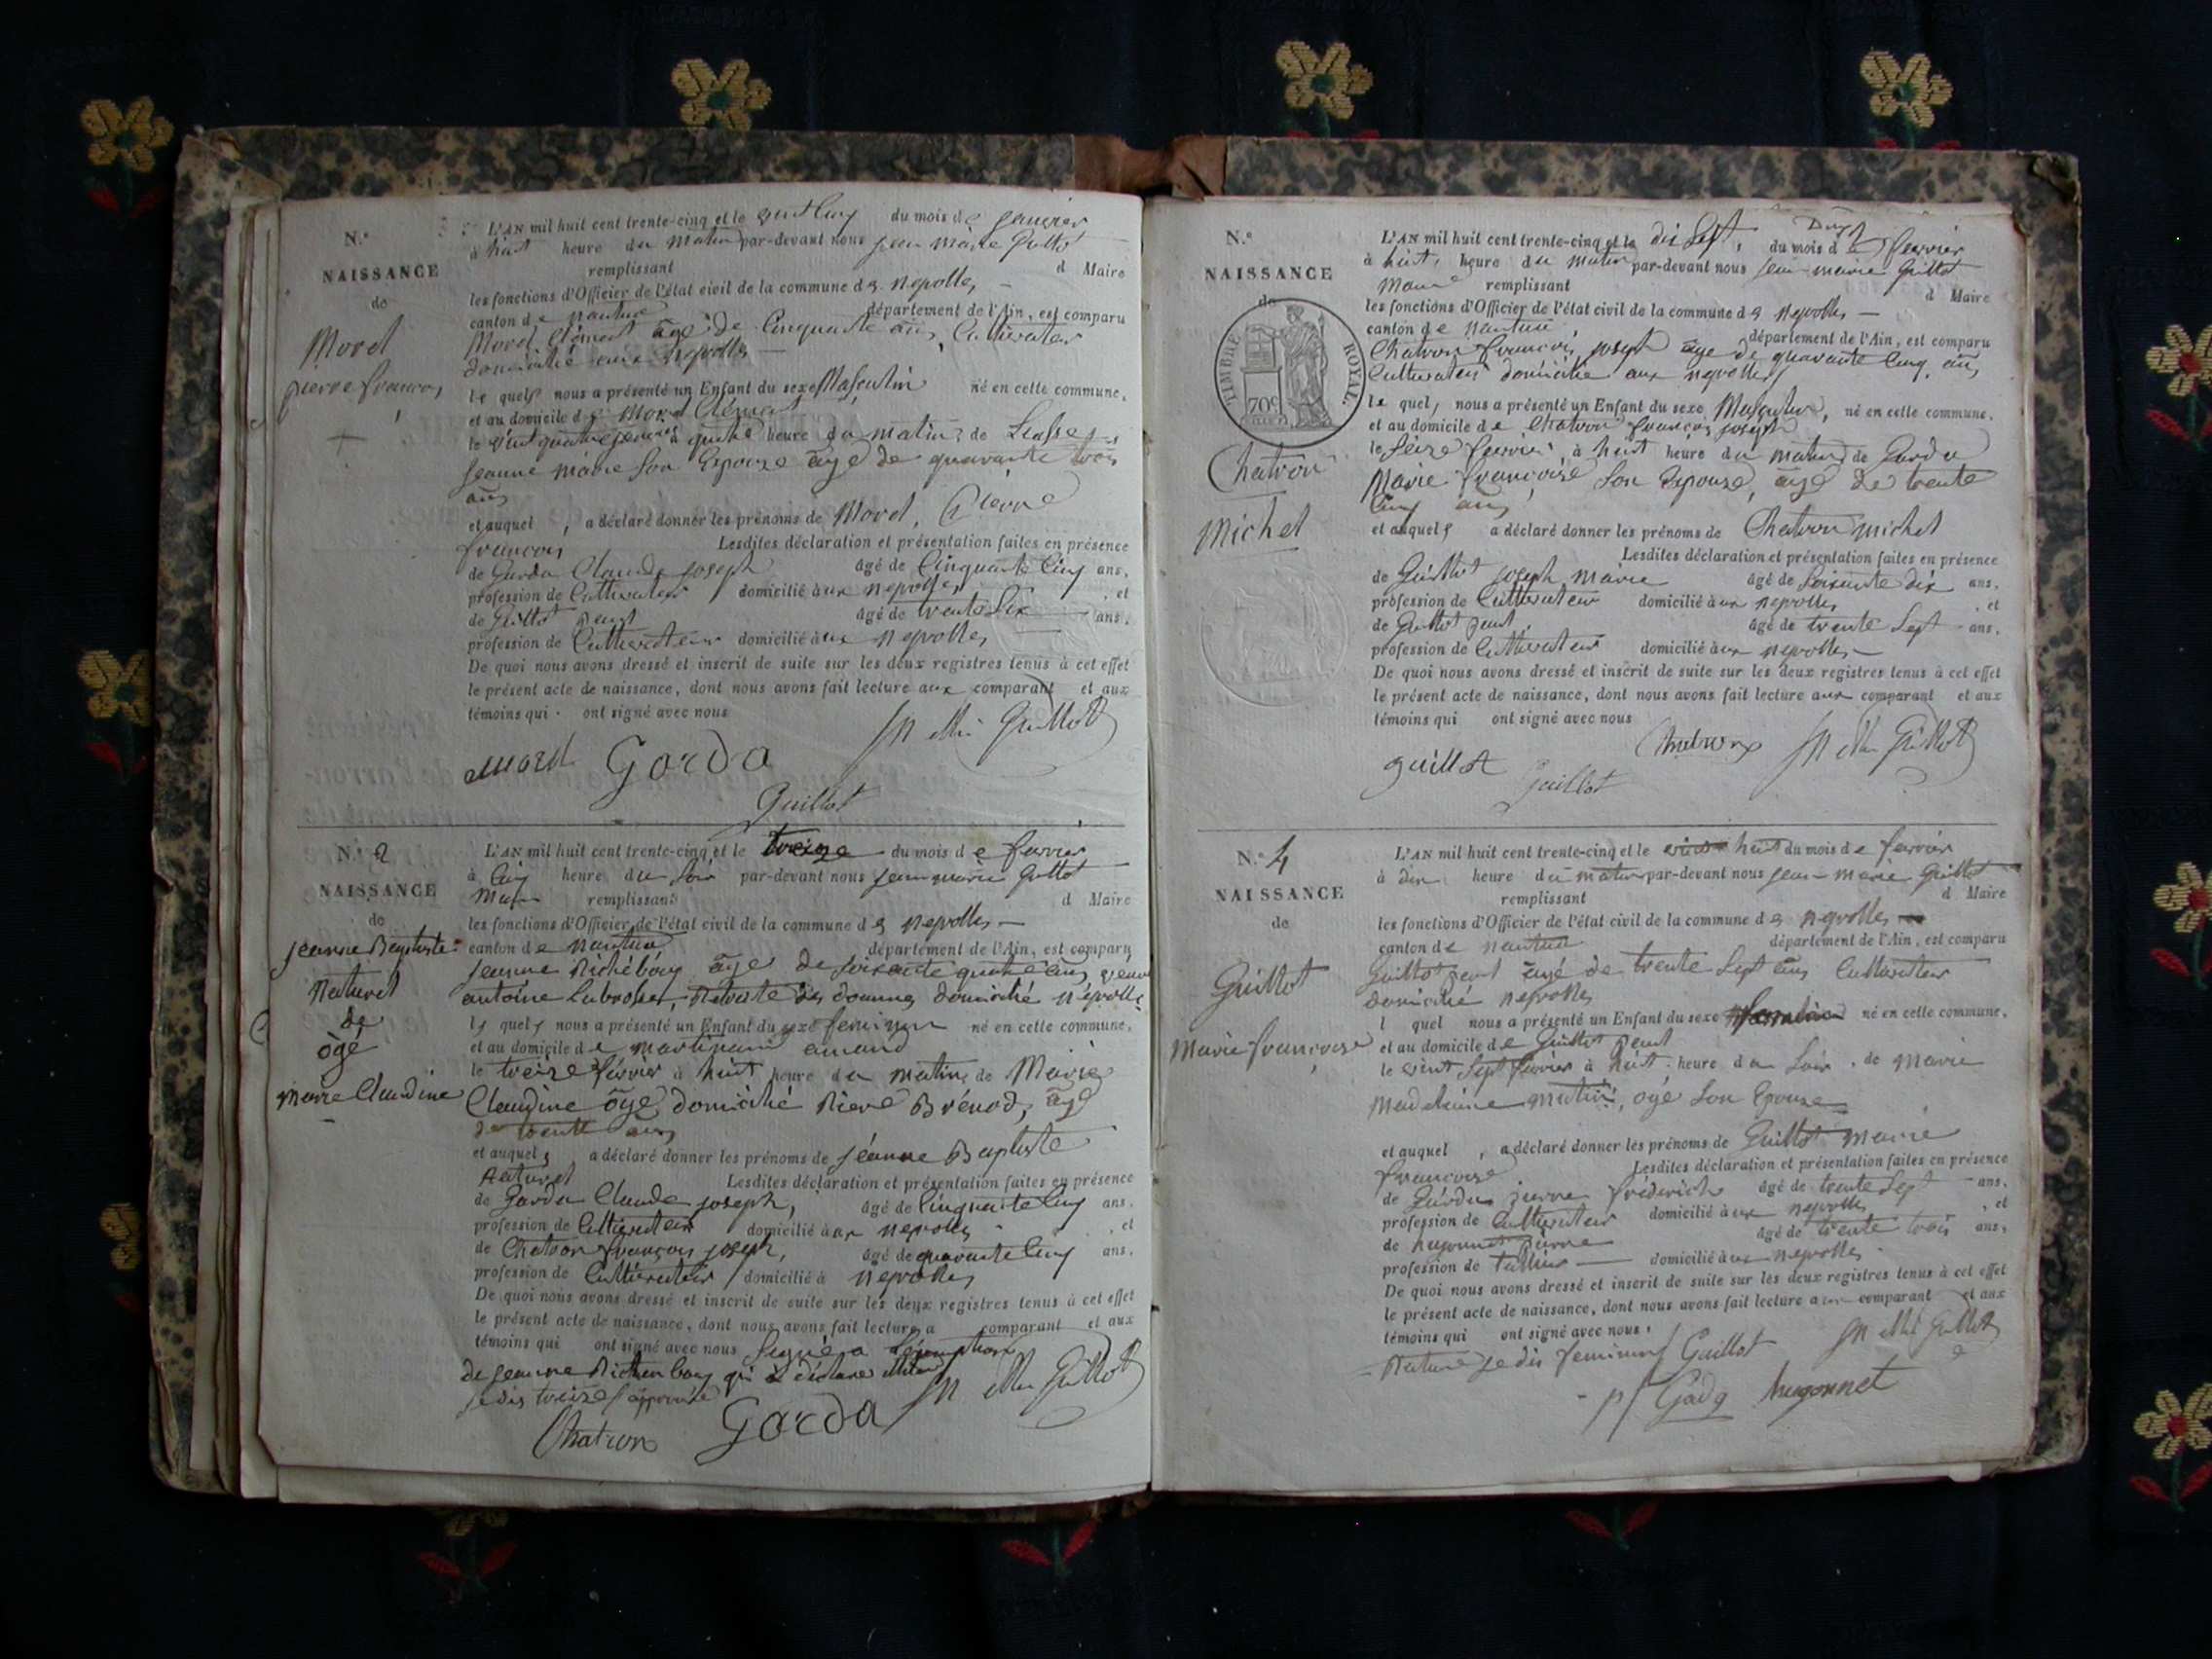 N.°
NAISSANCE
de
Morel
pierre francois
L'AN mil huit cent trente-cinq et le vint cinq du mois de janvier
à huit heure du matin par-devant nous jean marie Guillot
remplissant d Maire
les fonctions d'Officier de l'état civil de la commune des nepolles
canton de nantua département de l'Ain, est comparu
Morel Clément âgé de Cinquante ans, Cultivateur
domicilié aux nepolles
le quel nous a présenté un Enfant du sexe Masculin né en cette commune,
et au domicile de Morel Clément
le vint quatre janvier à quatre heure du matin, de
jeanne marie son Epouse âgé de quarante trois
ans
et auquel, a déclaré donner les prénoms de Morel, Pierre
francois Lesdites déclaration et présentation faites en présence
de Garda Claude joseph âgé de Cinquante Cinq ans,
profession de Cultivateur domicilié aux nepolles, et
de Guillot âgé de trente six ans,
profession de Cultivateur domicilié aux nepolles
De quoi nous avons dressé et inscrit de suite sur les deux registres tenus à cet effet
le présent acte de naissance, dont nous avons fait lecture aux comparant et aux
témoins qui ont signé avec nous
morel Garda JN Mie Guillot
Guillot
N.° 2
NAISSANCE
de
jeanne Baptiste
Naturel
de
ogé
marie Claudine
L'AN mil huit cent trente-cinq et le treize du mois de fevrier
à Cinq heure du soir par-devant nous jean marie Guillot
Maire remplissant d Maire
les fonctions d'Officier de l'état civil de la commune des nepolles
canton de nantua département de l'Ain, est comparu
jeanne Richeboug âgé de soixante quatre ans, veuve
antoine domicilié nepolles
le quel nous a présenté un Enfant du sexe feminin né en cette commune,
et au domicile de amand
le treize février à huit heure du matin, de Marie
Claudine ogé, domicilié Brénod, âgé
de trente ans
et auquel, a déclaré donner les prénoms de jéanne Baptiste
Naturel Lesdites déclaration et présentation faites en présence
de Garda Claude joseph, âgé de Cinquante Cinq ans,
profession de Cultivateur domicilié aux nepolles, et
de Chatron françois joseph, âgé de quarante Cinq ans,
profession de Cultivateur domicilié à nepolles
De quoi nous avons dressé et inscrit de suite sur les deux registres tenus à cet effet
le présent acte de naissance, dont nous avons fait lecture a comparant et aux
témoins qui ont signé avec nous
de jeanne qui a déclaré
je dis treize approuvé JN Mie Guillot
Chatron Garda
N.°
NAISSANCE
de
TIMBRE ROYAL
70c
Chatron
Michel
L'AN mil huit cent trente-cinq et le dix sept, du mois de fevrier
à huit, heure du matin par-devant nous jean-marie Guillot
Maire remplissant d Maire
les fonctions d'Officier de l'état civil de la commune des nepolles
canton de nantua, département de l'Ain, est comparu
Chatron francois joseph âgé de quarante Cinq, ans
Cultivateur domicilié aux nepolles
le quel, nous a présenté un Enfant du sexe Masculin, né en cette commune,
et au domicile de Chatron françois joseph
le seize fevrier, à huit heure du matin, de Garda
Marie françoise son Epouse, âgé de trente
Cinq ans
et auquel, a déclaré donner les prénoms de Chatron michel
Lesdites déclaration et présentation faites en présence
de Guillot joseph marie âgé de soixante dix ans,
profession de Cultivateur domicilié aux nepolles, et
de Guillot âgé de trente sept ans,
profession de Cultivateur domicilié aux nepolles
De quoi nous avons dressé et inscrit de suite sur les deux registres tenus à cet effet
le présent acte de naissance, dont nous avons fait lecture aux comparant et aux
témoins qui ont signé avec nous
guillot Guillot Chatron JN Mie Guillot
N.° 4
NAISSANCE
de
Guillot
Marie françoise
L'AN mil huit cent trente-cinq et le vint huit du mois de fevrier
à dix heure du matin par-devant nous jean-marie Guillot
remplissant d Maire
les fonctions d'Officier de l'état civil de la commune des nepolles
canton de nantua département de l'Ain, est comparu
Guillot âgé de trente sept ans Cultivateur
domicilié nepolles
l quel nous a présenté un Enfant du sexe né en cette commune,
et au domicile de Guillot
le vint sept fevrier à huit heure du soir, de Marie
Madelaine, ogé son Epouse
et auquel, a déclaré donner les prénoms de Guillot marie
francoise Lesdites déclaration et présentation faites en présence
de Garda pierre fréderich âgé de trente sept ans,
profession de Cultivateur domicilié aux nepolles, et
de hugonnet pierre âgé de trente trois ans,
profession de domicilié aux nepolles
De quoi nous avons dressé et inscrit de suite sur les deux registres tenus à cet effet
le présent acte de naissance, dont nous avons fait lecture a comparant et aux
témoins qui ont signé avec nous.
je dis feminin Guillot JN Mie Guillot
hugonnet